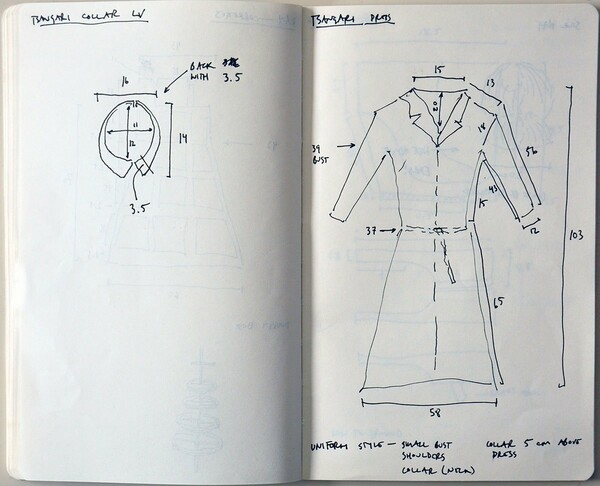 TSANGARI COLLAR LV
16
BACK
WITH 3.5
11
12
14
3.5
TSANGARI DRESS
15
13
20
18
39
BUST
56
43
15
12
37
103
65
58
UNIFORM STYLE — SMALL BUST
SHOULDERS
COLLAR (NECK)
COLLAR 5 cm ABOVE
DRESS